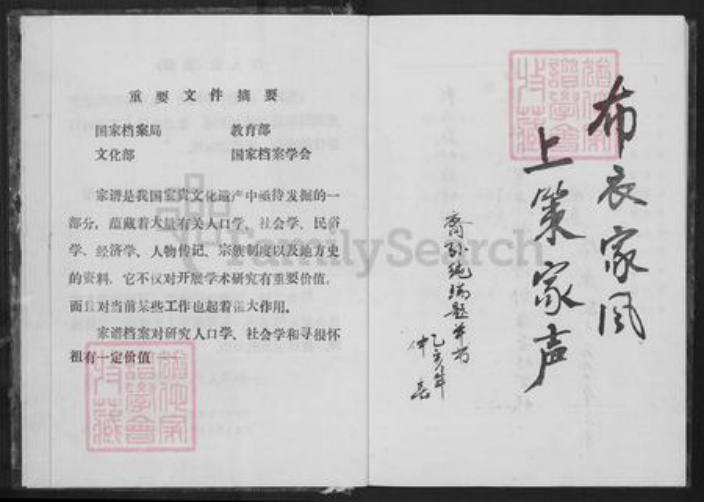 重要文件摘要
国家档案局 教育部
文化部 国家档案学会
家谱是我国宝贵文化遗产中亟待发掘的一
部分,蕴藏着大量有关人口学、社会学、民俗
学、经济学、人物传记、宗族制度以及地方史
的资料,它不仅对开展学术研究有重要价值,
而且对当前某些工作也起着很大作用。
家谱档案对研究人口学、社会学和寻根怀
祖有一定价值
FamilySearch
布衣家风
上策家声
乙亥年